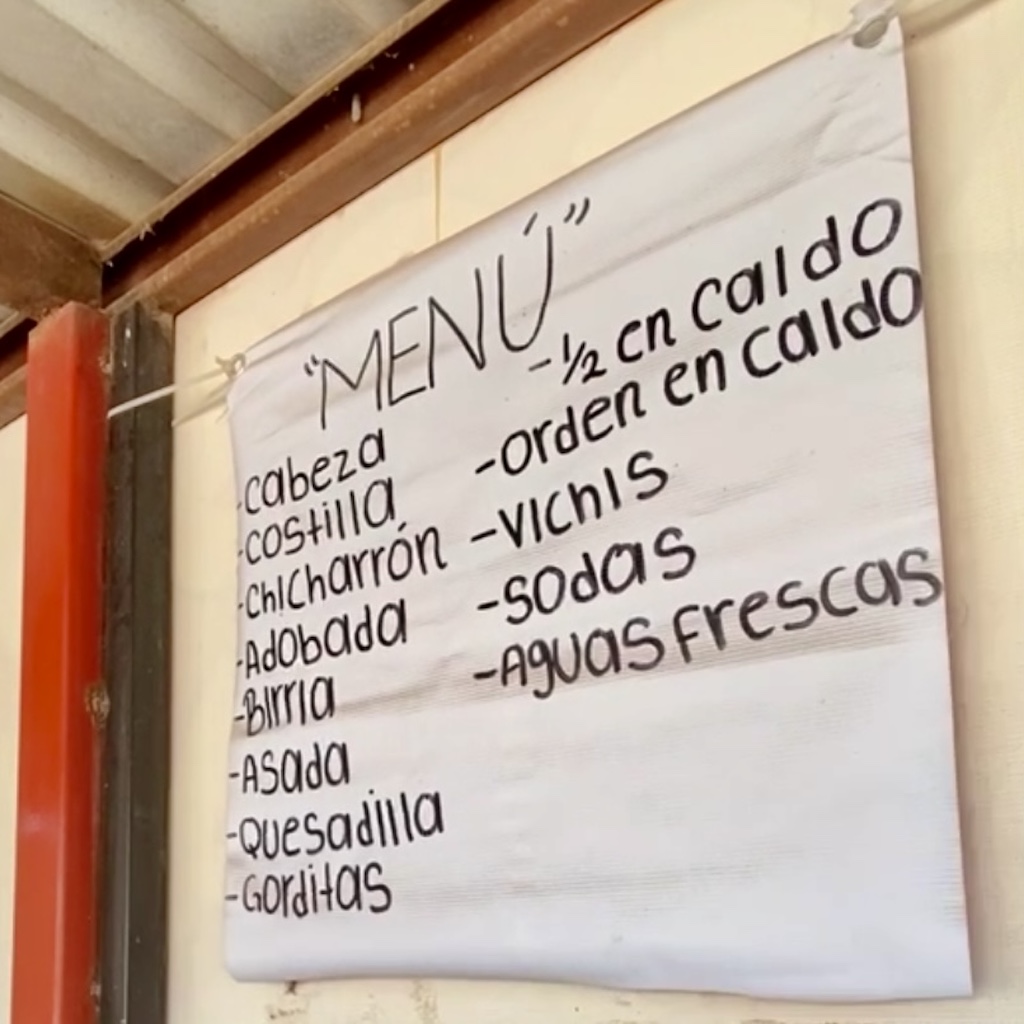 "MENÚ"
-Cabeza
-Costilla
-Chicharrón
-Adobada
-Birria
-Asada
-Quesadilla
-Gorditas
-½ en caldo
-Orden en caldo
-Vichis
-Sodas
-Aguas Frescas